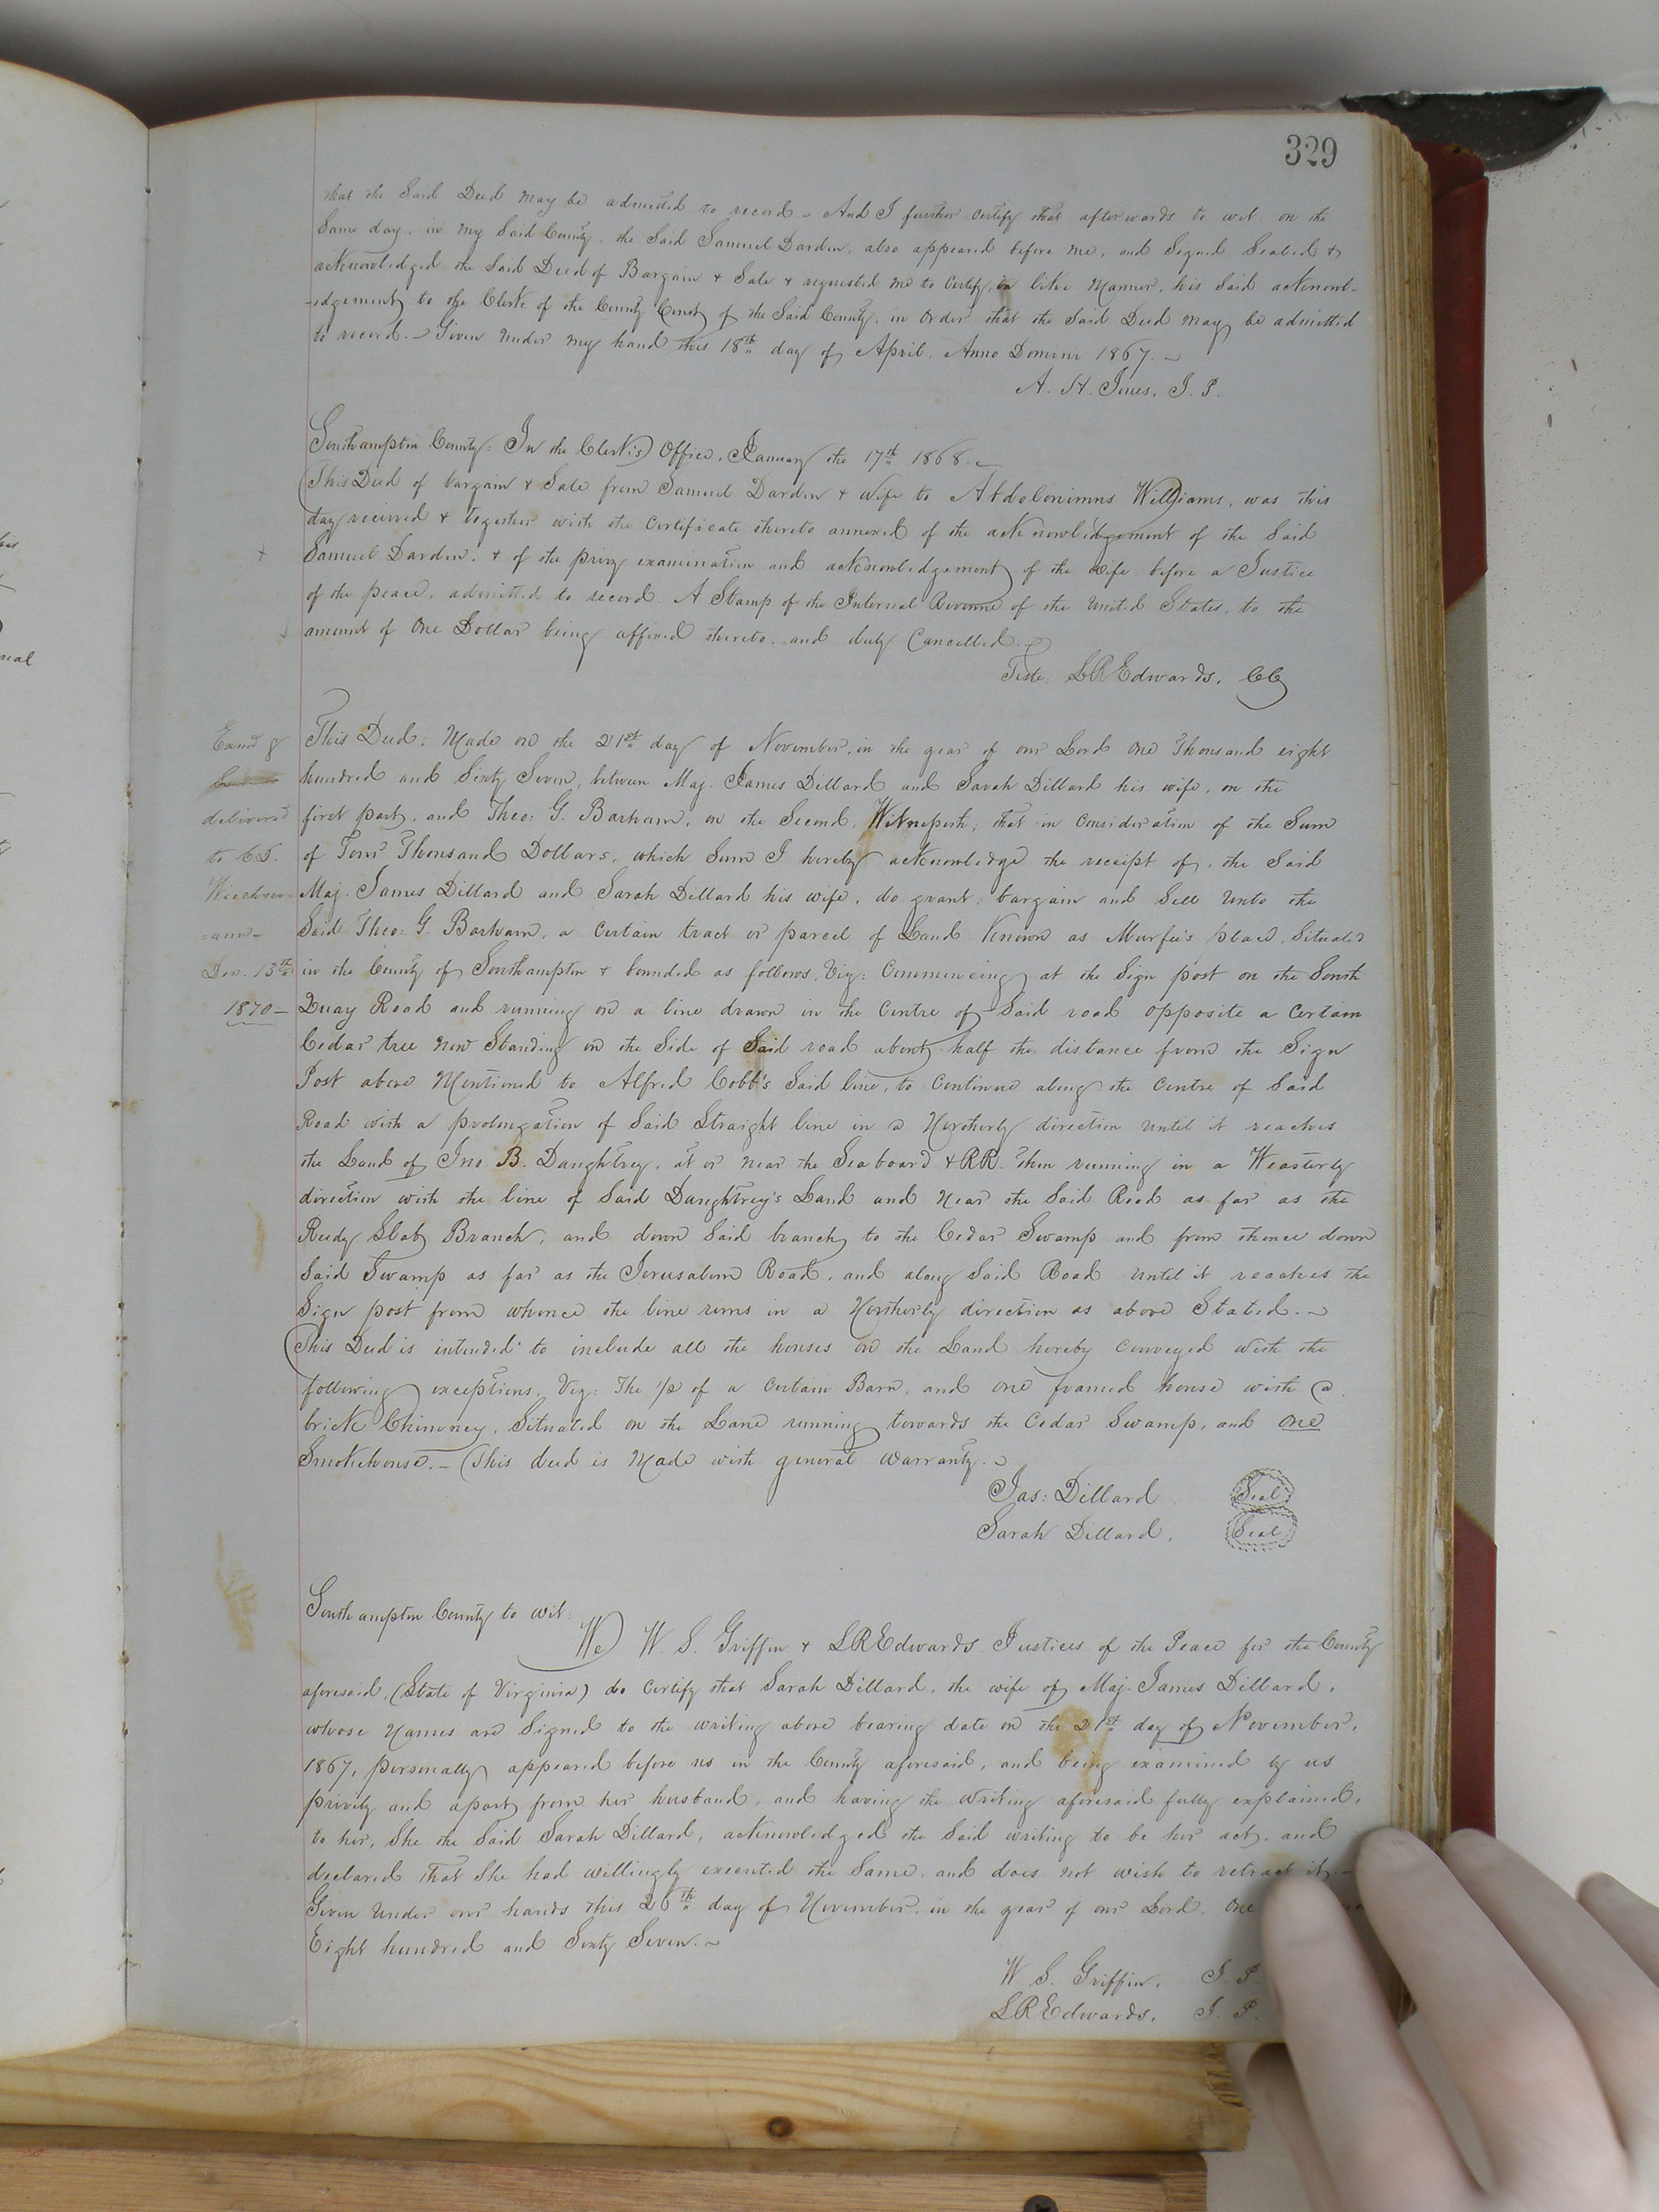 329
that the Said Deed may be admitted to record. - And I further certify that afterwards to wit: on the
Same day, in my Said County, the Said Samuel Darden, also appeared before me, and Signed Sealed &
acknowledged the Said Deed of Bargain & Sale & requested me to Certify, in like Manner, his Said acknowl-
-edgement to the Clerk of the County Court of the Said County, in Order that the Said Deed may be admitted
to record. - Given under my hand this 18th day of April, Anno Domini 1867. -
A. H. Jones, J. P.
Southampton County: In the Clerk's Office, January the 17th 1868. -
This Deed of bargain & Sale from Samuel Darden & wife to Abdolonimus Williams, was this
day received & together with the Certificate thereto annexed of the acknowledgement of the Said
Samuel Darden, & of the privy examination and acknowledgement of the wife before a Justice
of the peace, admitted to record. A Stamp of the Internal Revenue of the United States, to the
amount of One Dollar being affixed thereto, and duly Cancelled.
Teste. LREdwards, CC
Exmd &
delivered
to C.D.
Dec. 13th
1870 -
This Deed, Made on the 21st day of November, in the year of our Lord One Thousand eight
hundred and Sixty Seven, between Maj. James Dillard and Sarah Dillard his wife, on the
first part, and Theo: G. Barham, on the Second, Witnesseth, that in Consideration of the Sum
of Four Thousand Dollars, which Sum I hereby acknowledge the receipt of, the Said
Maj. James Dillard and Sarah Dillard his wife, do grant, bargain and Sell unto the
Said Theo: G. Barham, a Certain tract or parcel of Land Known as Murfee's place, Situated
in the County of Southampton & bounded as follows, Viz: Commencing at the Sign post on the South
Quay Road and running on a line drawn in the Centre of Said road opposite a Certain
Cedar tree now Standing on the Side of Said road about half the distance from the Sign
Post above Mentioned to Alfred Cobb's Said line, to Continue along the Centre of Said
Road with a prolongation of Said Straight line in a Northerly direction until it reaches
the Land of Jno. B. Daughtrey, at or near the Seaboard & RR. then running in a Weasterly
direction with the line of Said Daughtrey's Land and Near the Said Road as far as the
Reedy Slab Branch, and down Said branch to the Cedar Swamp and from thence down
Said Swamp as far as the Jerusalem Road, and along Said Road until it reaches the
Sign post from whence the line runs in a Northerly direction as above Stated. -
This Deed is intended to include all the houses on the Land hereby Conveyed with the
following exceptions, Viz: The 1/2 of a Certain Barn, and one framed house with a
brick Chimney, Situated on the Lane running towards the Cedar Swamp, and one
Smokehouse. - This deed is Made with general Warranty. -
Jas: Dillard Seal
Sarah Dillard, Seal
Southampton County to wit:
We W. S. Griffin & LREdwards Justices of the Peace for the County
aforesaid, (State of Virginia) do Certify that Sarah Dillard, the wife of Maj. James Dillard,
whose Names are Signed to the writing above bearing date on the 21st day of November,
1867, personally appeared before us in the County aforesaid, and being examined by us
privily and apart from her husband, and having the writing aforesaid fully explained,
to her, She the Said Sarah Dillard, acknowledged the Said writing to be her act, and
declared that She had willingly executed the Same, and does not wish to retract it. -
Given Under our hands this 26th day of November, in the year of our Lord, One
Eight hundred and Sixty Seven. -
W. S. Griffin, J. P.
LREdwards, J. P.